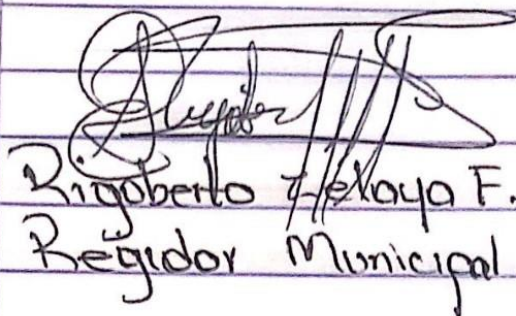 Rigoberto Zelaya F.
Regidor Municipal